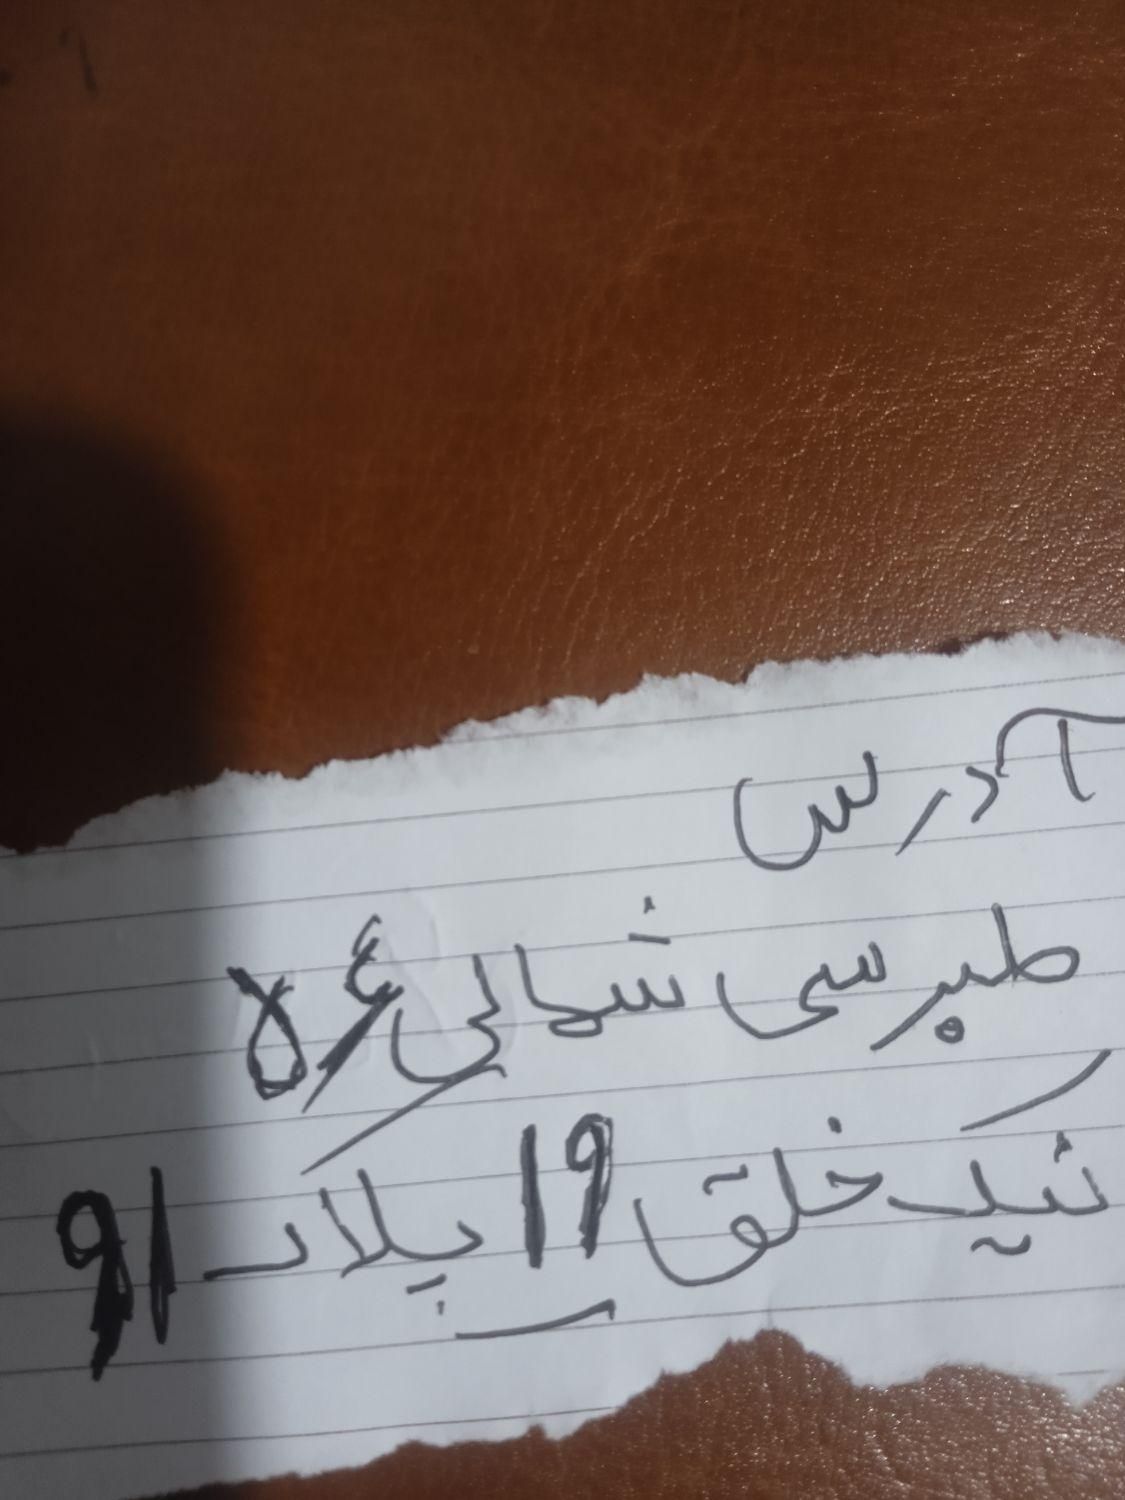 آدرس
طبرسی شمالی ۴/۵
نیک خلق ۱۹ پلاک ۹۱